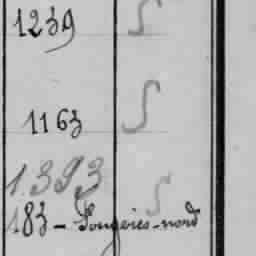 1239 S
1163 S
1393 S
183 - Longeries-nord